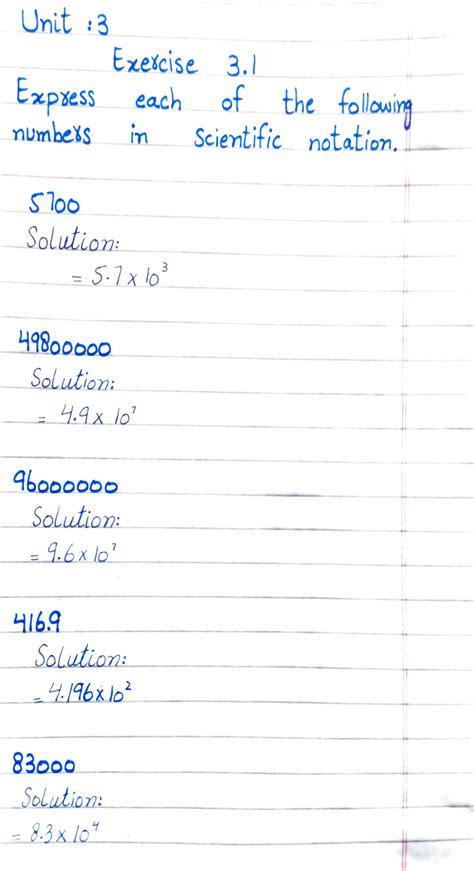 Unit :3
Exercise 3.1
Express each of the following
numbers in Scientific notation.
5700
Solution:
= 5.7 x 10³
49800000
Solution:
= 4.9 x 10⁷
96000000
Solution:
= 9.6 x 10⁷
416.9
Solution:
= 4.196 x 10²
83000
Solution:
= 8.3 x 10⁴